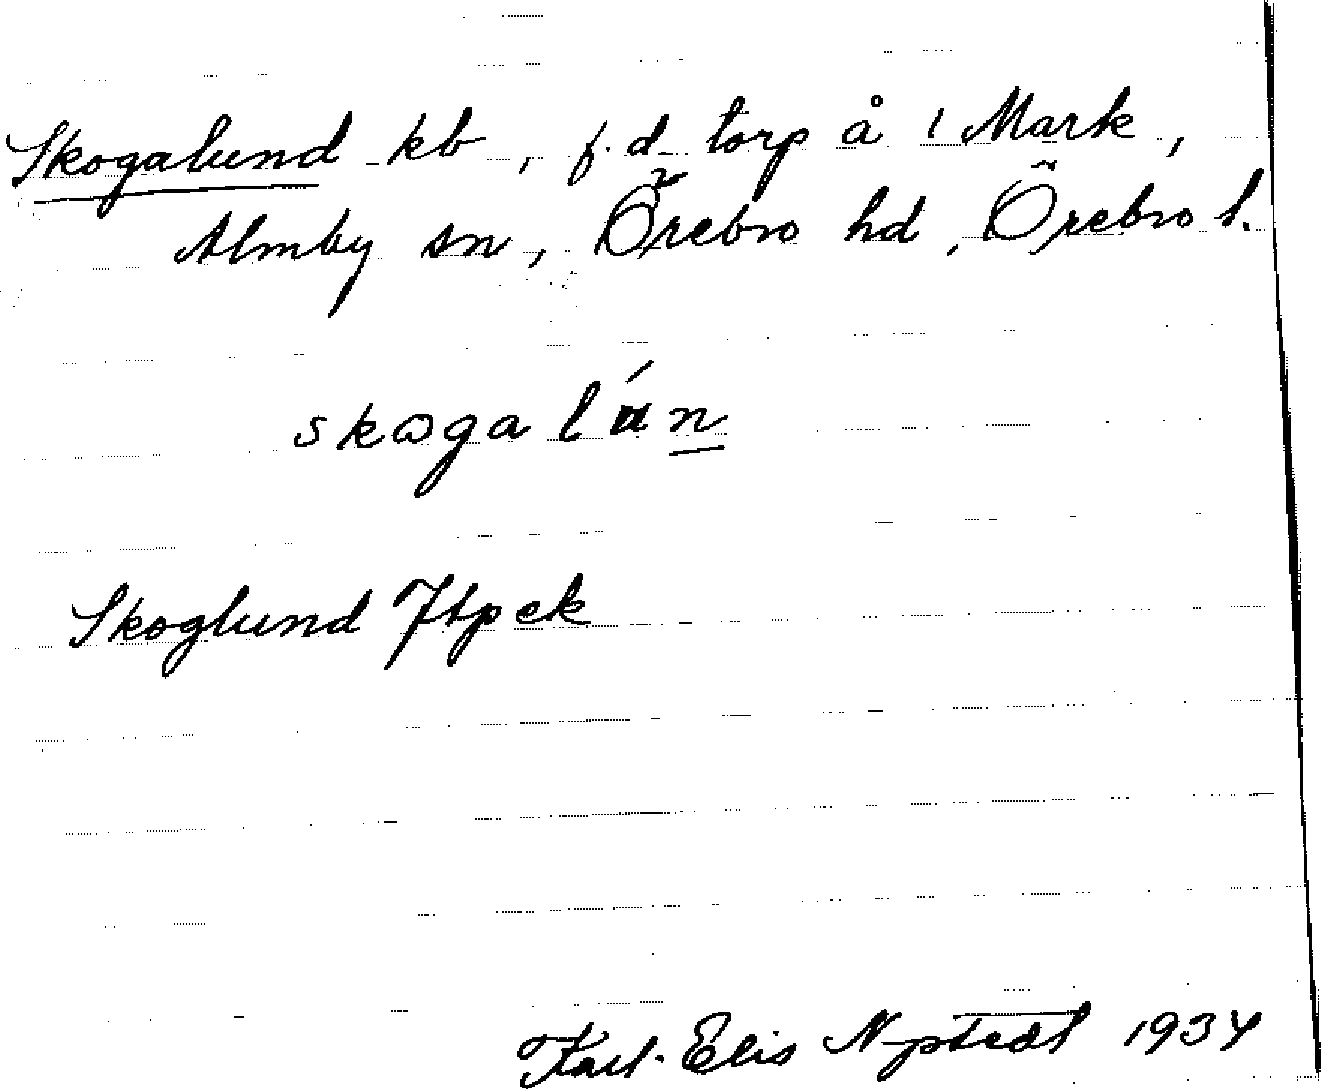 Skogalund kb, f.d. torp å 1 Mark,
Almby sn, Örebro hd, Örebro l.
skogalún
Skoglund Jtpek
Karl-Elis Nystedt 1934